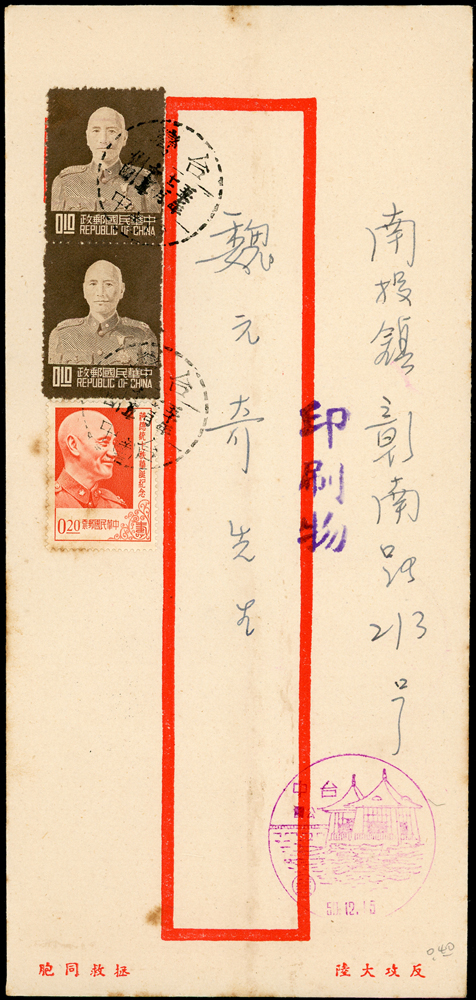 南投鎮彰南路213号
印刷物
魏元奇先生
中華民國郵政
REPUBLIC OF CHINA
0.10
中華民國郵政
REPUBLIC OF CHINA
0.10
總統
華誕紀念
中華民國郵票
0.20
台中
台中
台中
反攻大陸
拯救同胞
0.40